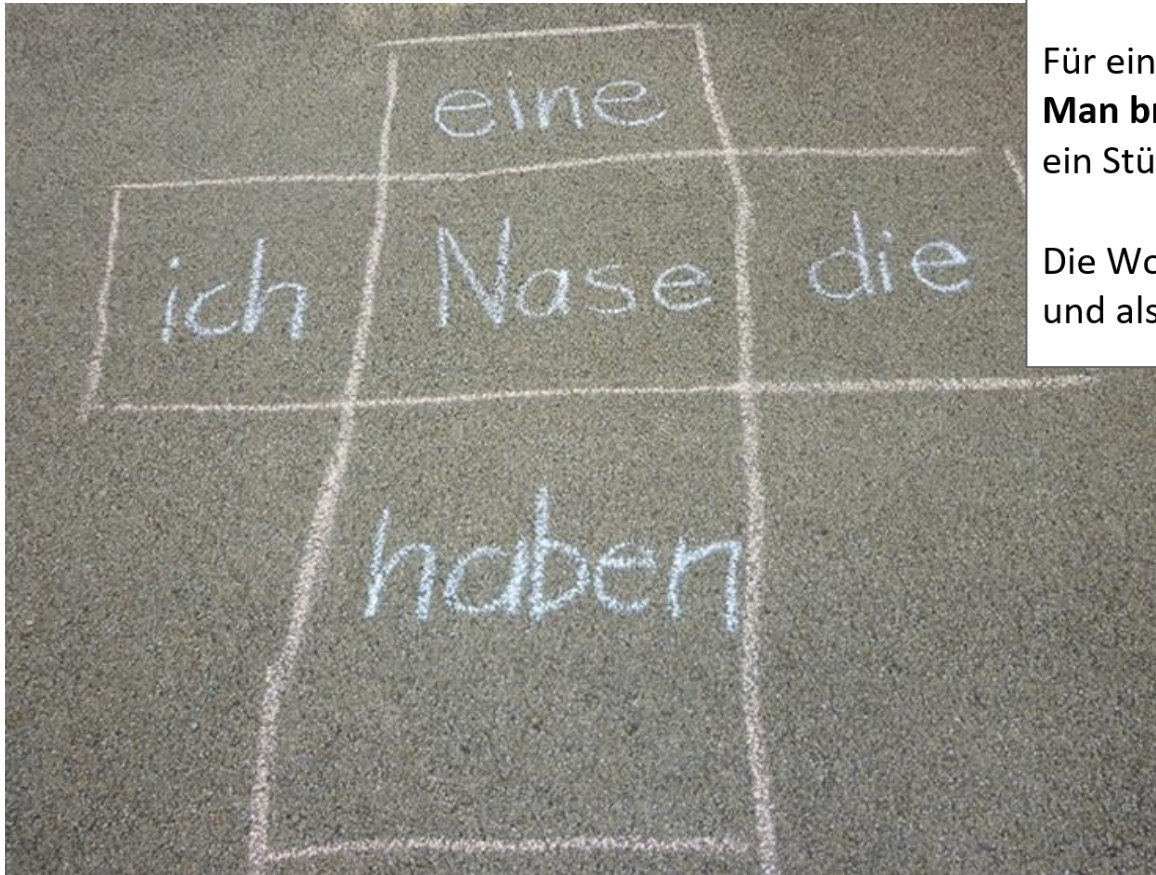 eine
ich Nase die
haben
Für ein
Man br
ein Stü
Die Wo
und als